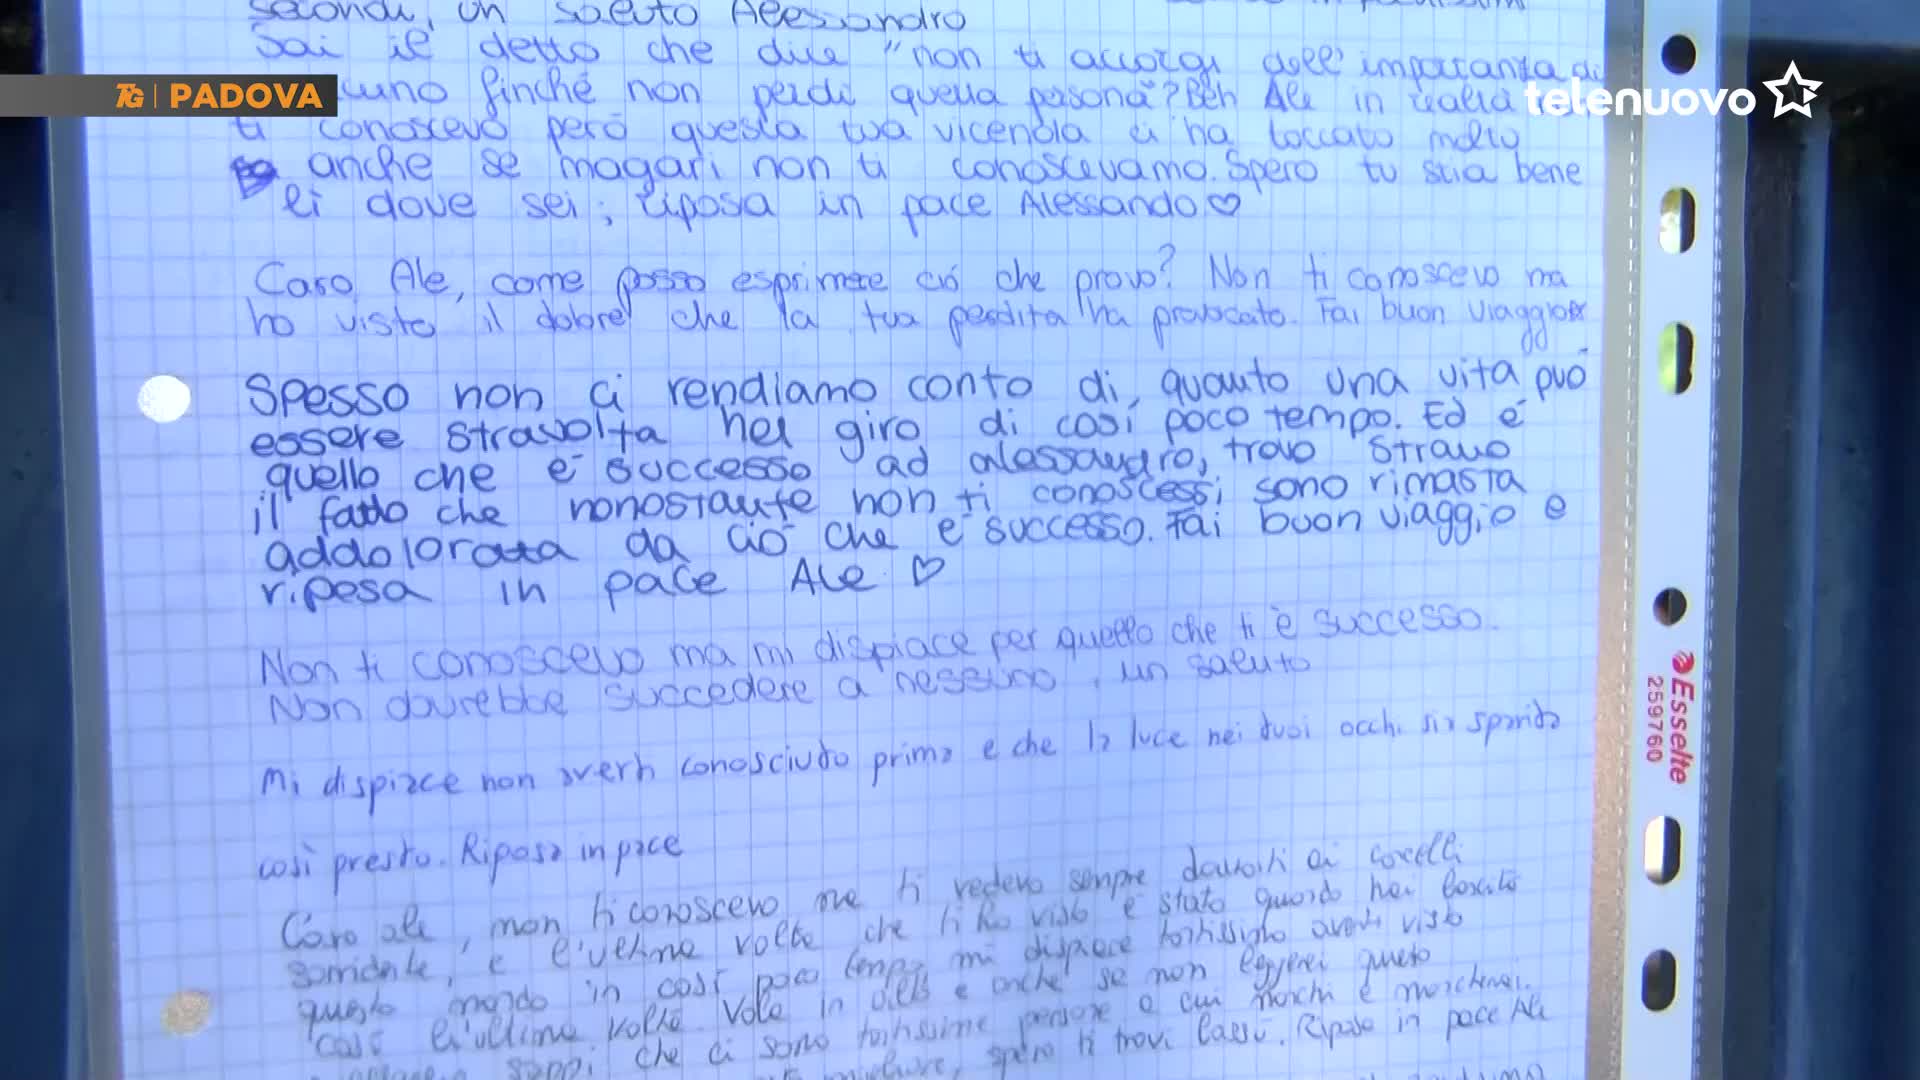 secondi, un saluto Alessandro
Sai il detto che dice "non ti accorgi dell'importanza di
TG | PADOVA
uno finché non perdi quella persona"? Beh Ale in realtà
telenuovo
ti conoscevo però questa tua vicenda ci ha toccato molto
anche se magari non ti conoscevamo. Spero tu stia bene
lì dove sei, riposa in pace Alessando ♡
Caro Ale, come posso esprimere ciò che provo? Non ti conoscevo ma
ho visto il dolore che la tua perdita ha provocato. Fai buon viaggio
Spesso non ci rendiamo conto di quanto una vita può
essere stravolta nel giro di così poco tempo. Ed è
quello che è successo ad alessandro, trovo strano
il fatto che nonostante non ti conoscessi sono rimasta
addolorata da ciò che è successo. Fai buon viaggio e
riposa in pace Ale ♡
Non ti conoscevo ma mi dispiace per quello che ti è successo.
Non dovrebbe succedere a nessuno, un saluto
Mi dispiace non averti conosciuto prima e che la luce nei tuoi occhi sia sparita
così presto. Riposa in pace
Caro ale, non ti conoscevo ma ti vedevo sempre davanti ai
sorridente, e l'ultima volta che ti ho visto è stato quando hai lasciato
questo mondo in così poco tempo, mi dispiace tantissimo averti visto
così l'ultima volta. Vola in alto e anche se non leggerai questo
sappi che ci sono tantissime persone a cui manchi e mancherai.
migliore, spero ti trovi lassù. Riposa in pace Ale
Esselte
259760